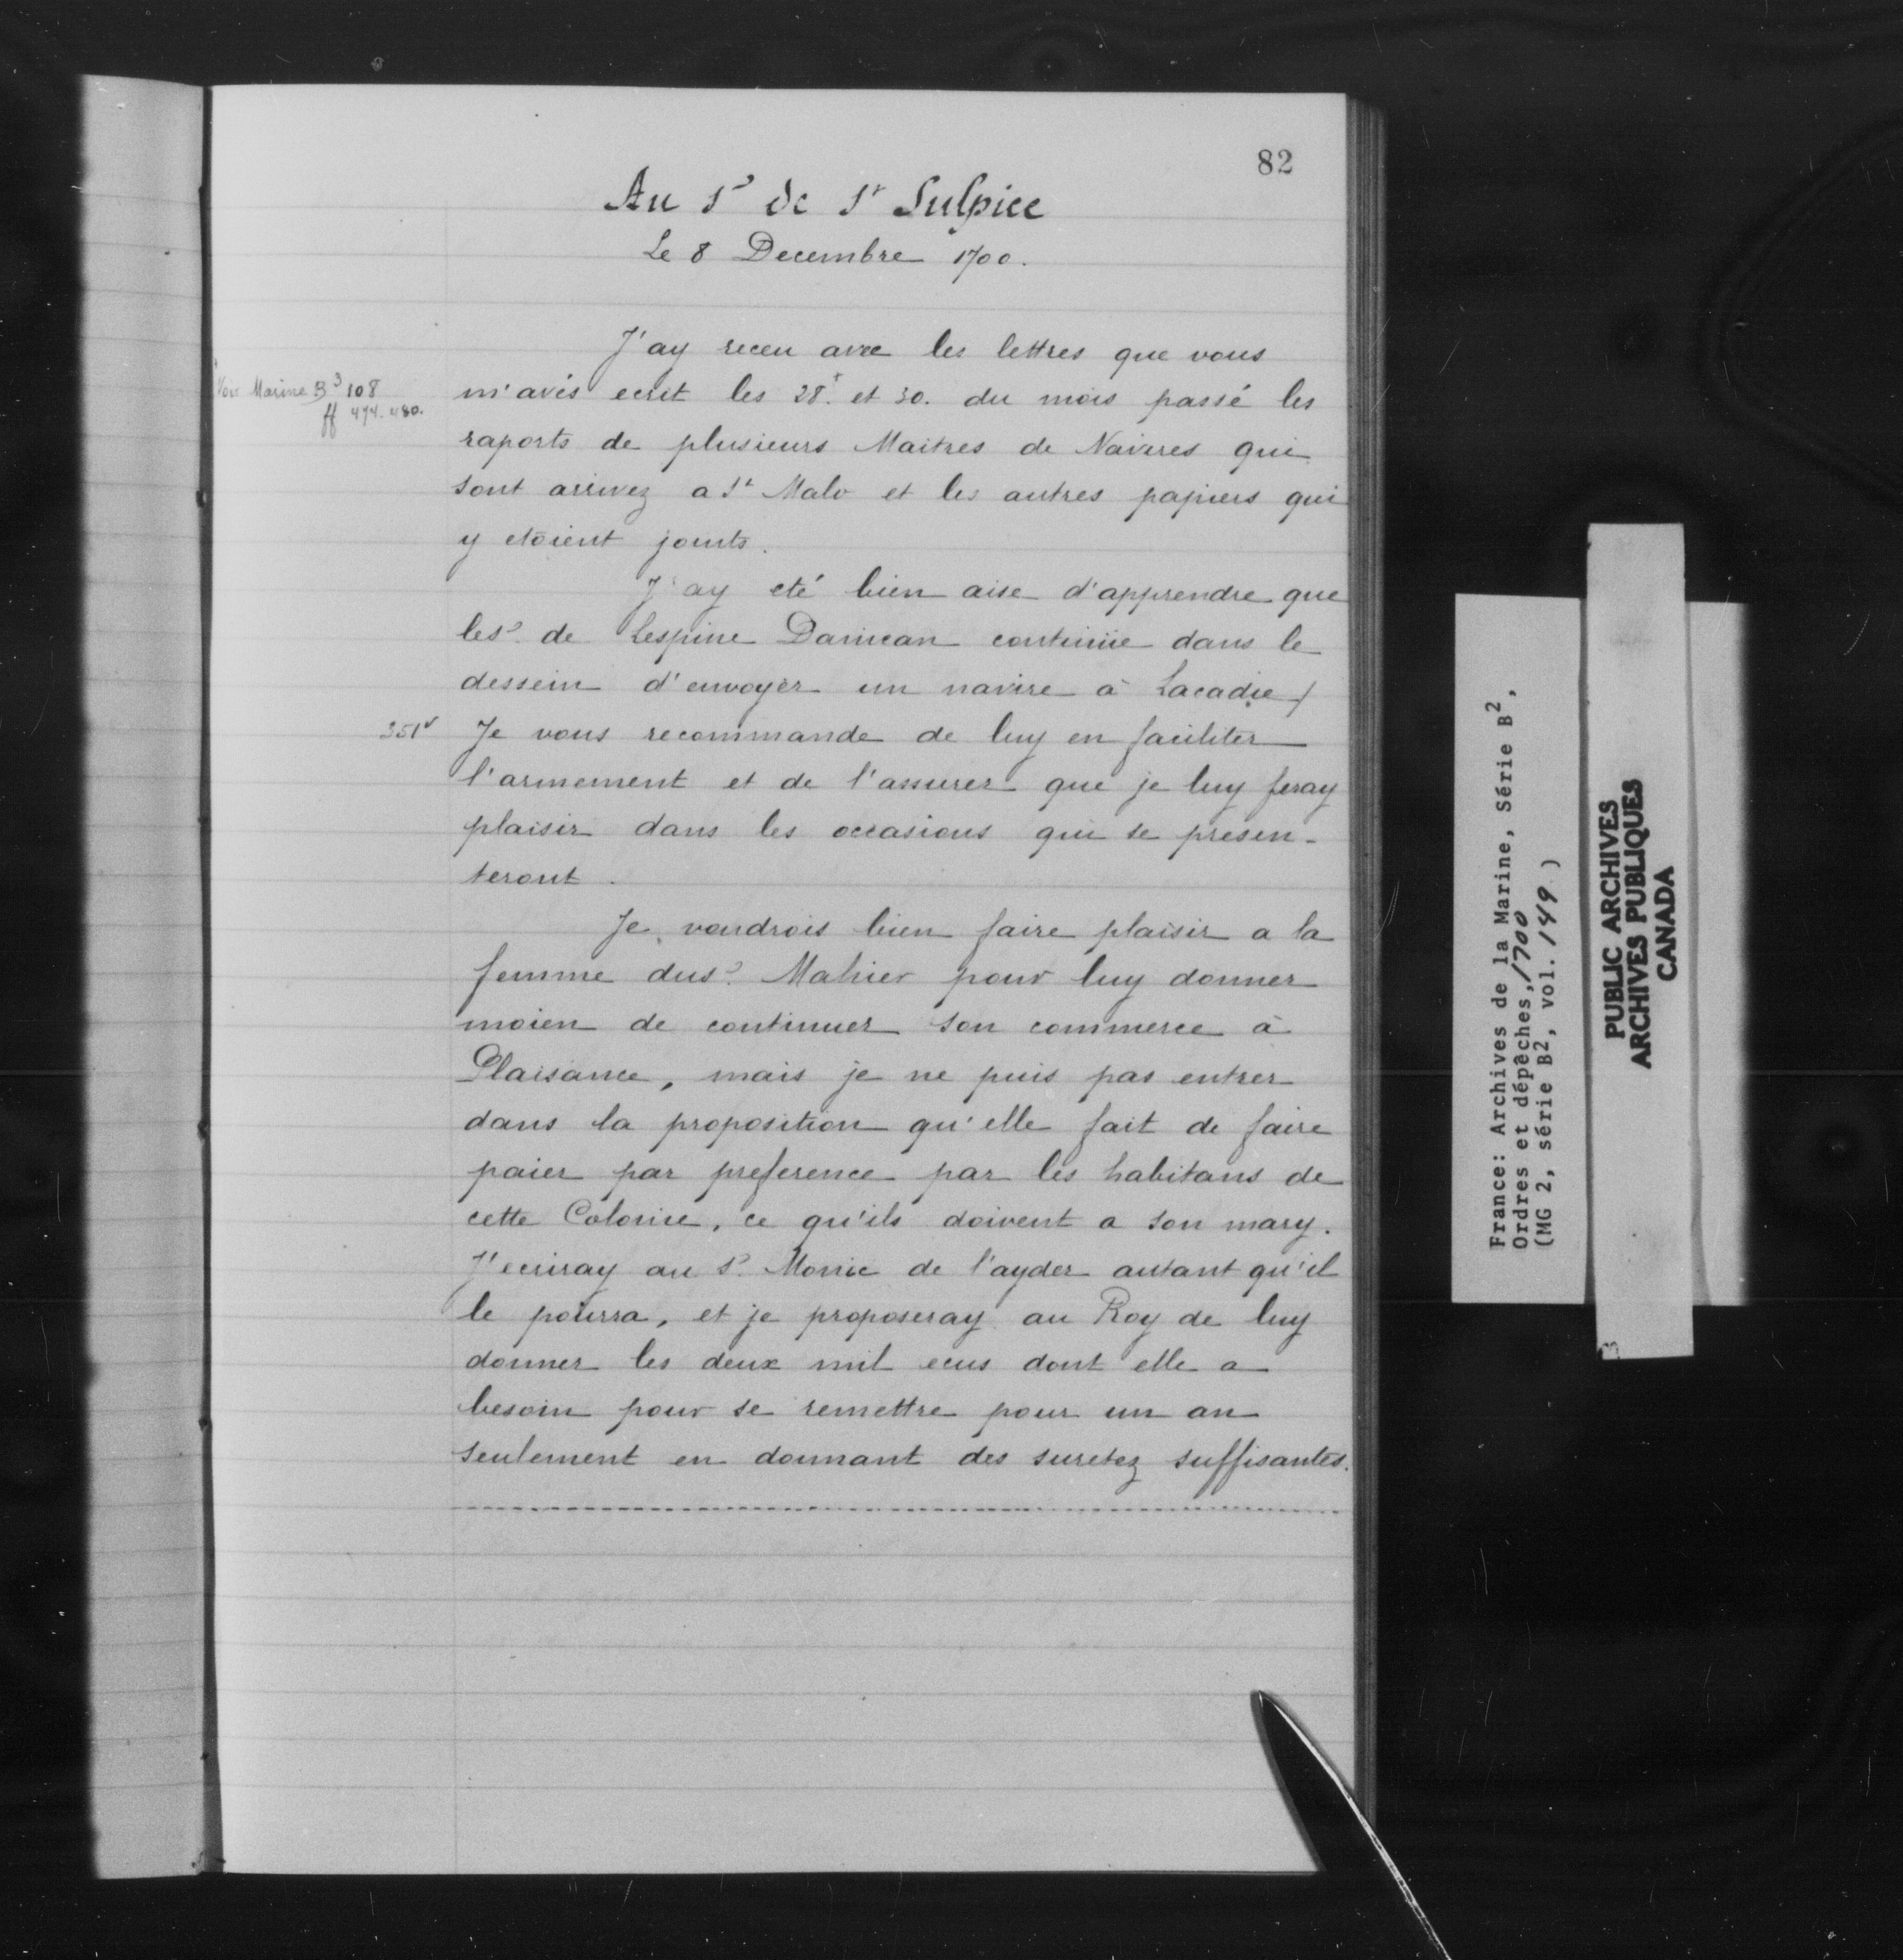 82
Au Sr de St Sulpice
Le 8 Decembre 1700.
J'ay receu avec les lettres que vous
Voir Marine B3 108
ff 474.480.
m'avés ecrit les 28. et 30. du mois passé les
raports de plusieurs Maitres de Navires qui
sont arrivez a St Malo et les autres papiers qui
y etoient joints.
J'ay eté bien aise d'apprendre que
les r. de Lespine Danican continüe dans le
dessein d'envoyer un navire à Lacadie /
351v
Je vous recommande de luy en faciliter
l'armement et de l'assurer que je luy feray
plaisir dans les occasions qui se presen-
teront.
Je voudrois bien faire plaisir a la
femme dus r. Mahier pour luy donner
moien de continuer son commerce à
Plaisance, mais je ne puis pas entrer
dans la proposition qu'elle fait de faire
paier par preference par les habitans de
cette Colonie, ce qu'ils doivent a son mary.
J'ecriray au Sr. Monic de l'ayder autant qu'il
le pourra, et je proposeray au Roy de luy
donner les deux mil ecus dont elle a
besoin pour se remettre pour un an
seulement en donnant des suretez suffisantes.
France: Archives de la Marine, Série B2,
Ordres et dépêches, 1700
(MG 2, série B2, vol. 149 )
PUBLIC ARCHIVES
ARCHIVES PUBLIQUES
CANADA